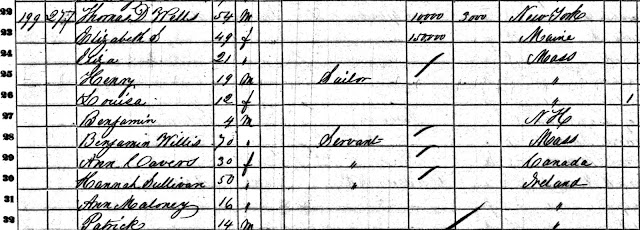 22 199 277 Thomas D Wells 54 m 10000 3000 New York
23 Elizabeth S 49 f 150,000 Maine
24 Eliza 21 " Mass
25 Henry 19 m Sailor "
26 Louisa 12 f " 1
27 Benjamin 4 m N H
28 Benjamin Willis 70 " Servant Mass
29 Ann Cavers 30 f " Canada
30 Hannah Sullivan 50 " " Ireland
31 Ann Maloney 16 " "
32 Patrick 14 m "